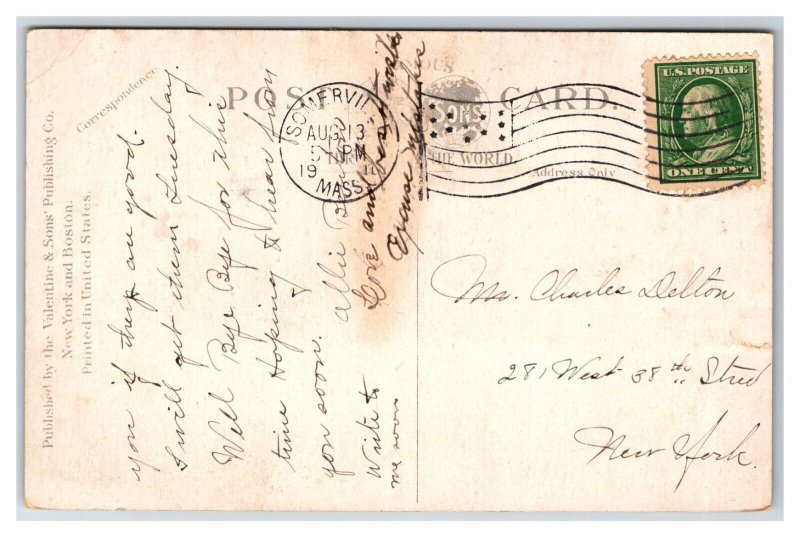 Published by the Valentine & Sons' Publishing Co.
New York and Boston.
Printed in United States.
Correspondence
you if they are good.
I will get them Tuesday.
Well Bye Bye for this
time Hoping to hear from
you soon. Allie
Write to
me soon
Love and
Excuse mistakes
POST CARD.
FAMOUS
SONS
THE WORLD
Address Only
SOMERVILLE
AUG 13
PM
19
MASS.
U.S. POSTAGE
ONE CENT
Mr. Charles Delton
281 West 38th Street
New York.